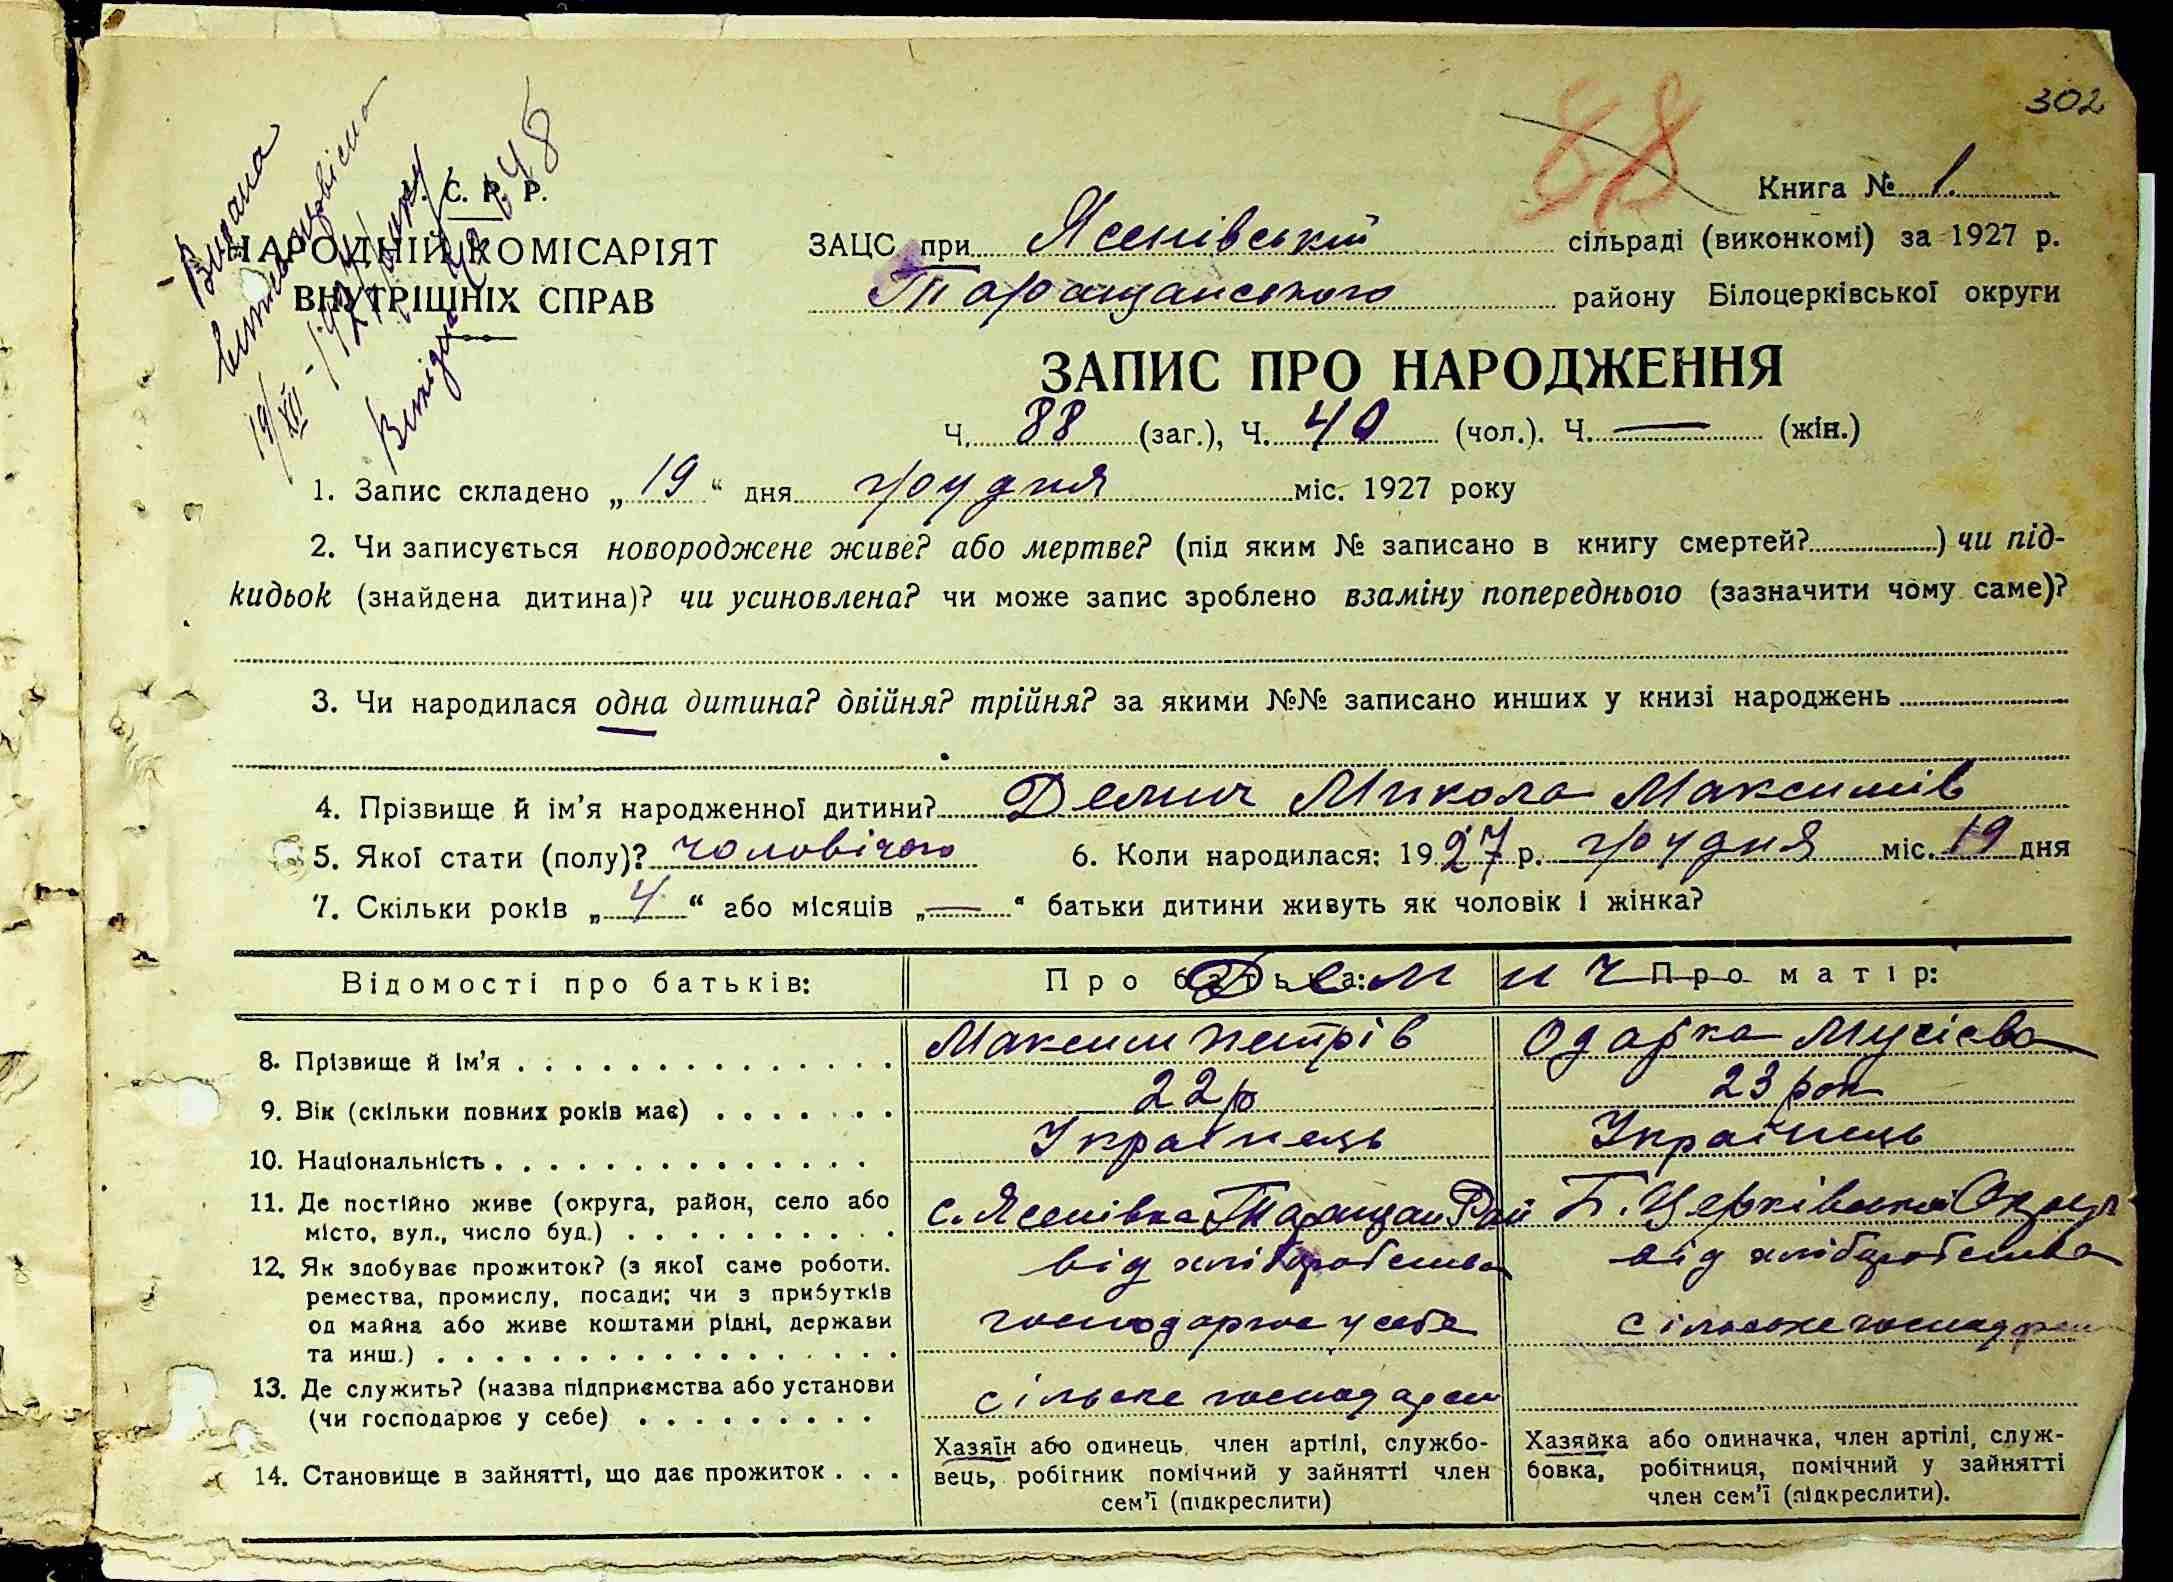 302
88
Видана
19/XII - 1927
С. Р. Р.
Книга № 1.
НАРОДНІЙ КОМІСАРІЯТ
ВНУТРІШНІХ СПРАВ
ЗАЦС при Ясенівській сільраді (виконкомі) за 1927 р.
Таращанського району Білоцерківської округи
ЗАПИС ПРО НАРОДЖЕННЯ
Ч. 88 (заг.), Ч. 40 (чол.). Ч. — (жін.)
1. Запис складено „ 19 “ дня грудня міс. 1927 року
2. Чи записується новороджене живе? або мертве? (під яким № записано в книгу смертей? ) чи під-
кидьок (знайдена дитина)? чи усиновлена? чи може запис зроблено взаміну попереднього (зазначити чому саме)?
3. Чи народилася одна дитина? двійня? трійня? за якими №№ записано инших у книзі народжень
4. Прізвище й ім’я народженної дитини? Демич Микола Максимів
5. Якої стати (полу)? чоловічого 6. Коли народилася: 1927 р. грудня міс. 19 дня
7. Скільки років „ 4 “ або місяців „ — “ батьки дитини живуть як чоловік і жінка?
Відомості про батьків: Про батька: Про матір:
Демич
8. Прізвище й ім’я Максим Петрів Одарка Мусієва
9. Вік (скільки повних років має) 22 р 23 рок
10. Національність Українець Українець
11. Де постійно живе (округа, район, село або
місто, вул., число буд.) с. Ясенівка Таращан Рай Б. Церківської Округ
12. Як здобуває прожиток? (з якої саме роботи.
ремества, промислу, посади; чи з прибутків
од майна або живе коштами рідні, держави
та инш.)
від хліборобства від хліборобства
господарює у себе
13. Де служить? (назва підприємства або установи
(чи господарює у себе) сільське господарст сільське господарст
14. Становище в зайнятті, що дає прожиток
Хазяїн або одинець, член артілі, службо-
вець, робігник помічний у зайнятті член
сем’ї (підкреслити)
Хазяйка або одиначка, член артілі, служ-
бовка, робітниця, помічний у зайнятті
член сем’ї (підкреслити).